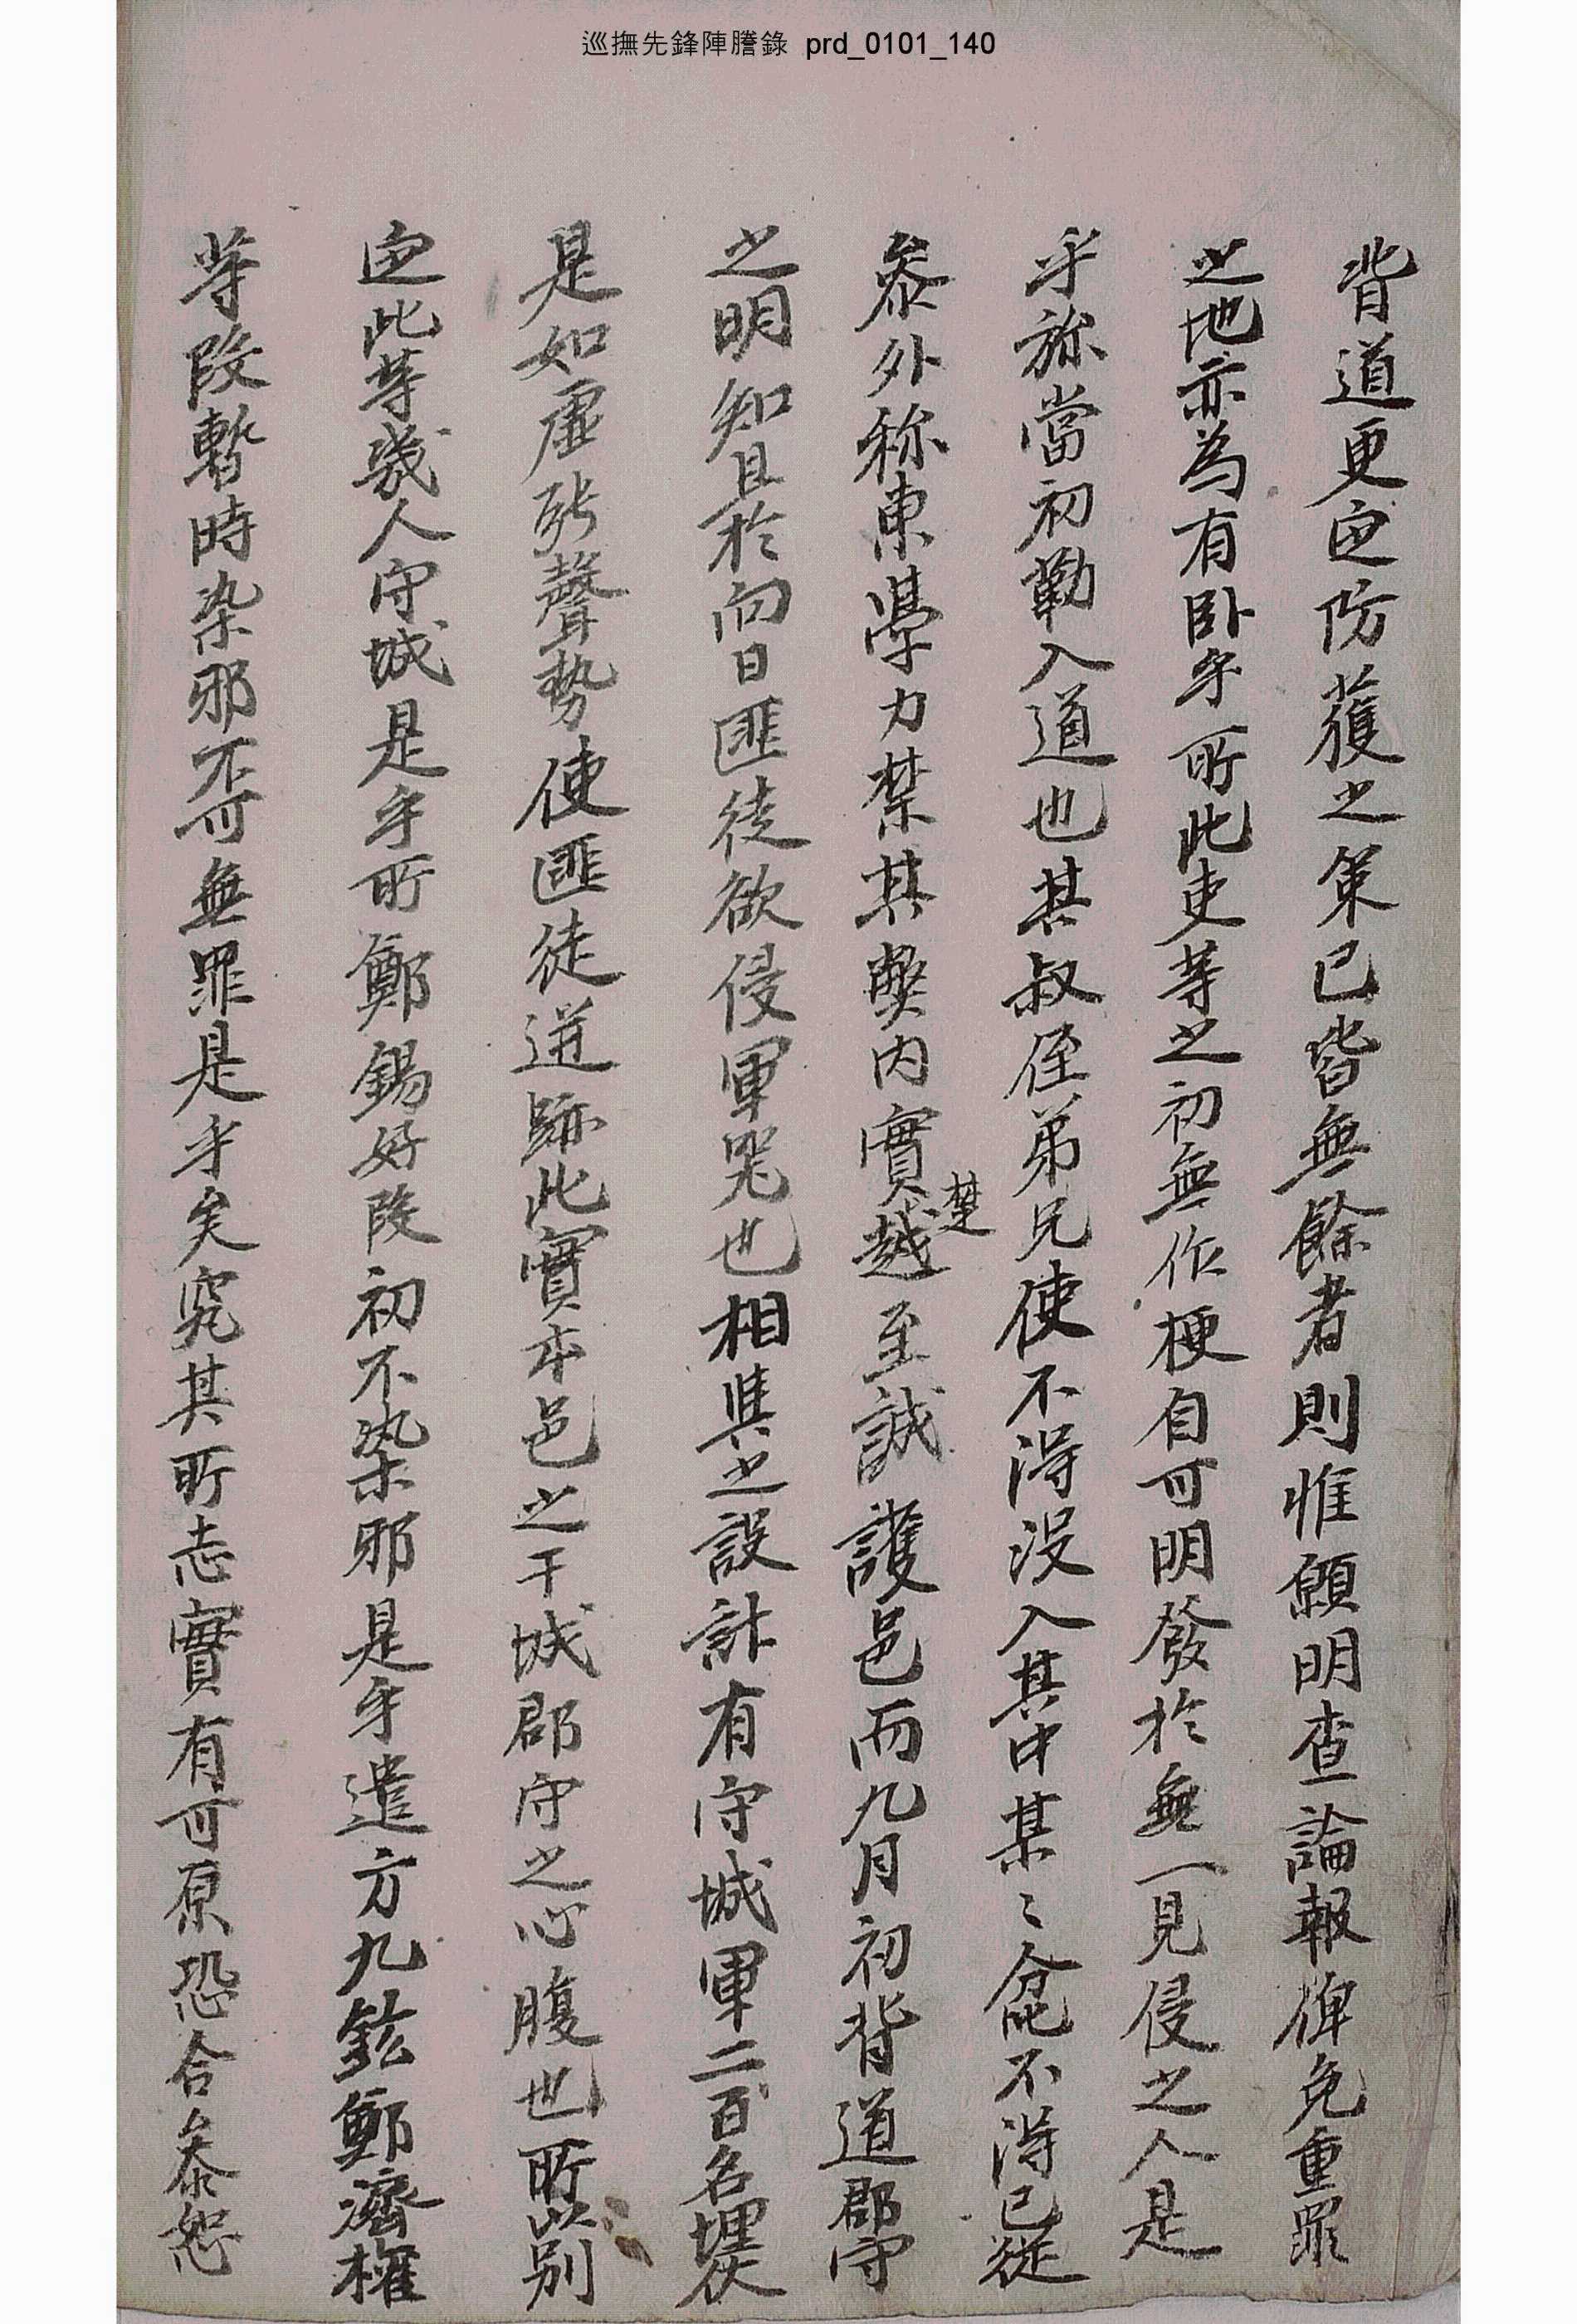 巡撫先鋒陣謄錄 prd_0101_140
背道更定防護之策已皆無餘者則惟願明查論報俾免重罪
之地亦為有臥乎所此吏等之初無作梗自可明發於無一見侵之人是
乎旀當初勒入道也其叔侄弟兄使不得沒入其中某〻人段不得已從
參外称東學力禁其弊內實楚越至誠護邑而九月初背道郡守
之明知且於向日匪徒欲侵軍器也相與之設計有守城軍二百名埋伏
是如虛張聲勢使匪徒逬跡此實本邑之干城郡守之心腹也所以別
定此等幾人守城是乎所鄭錫好段初不染邪是乎遣方九鉉鄭濟權
等段暫時染邪不可無罪是乎矣究其所志實有可原恐合參恕